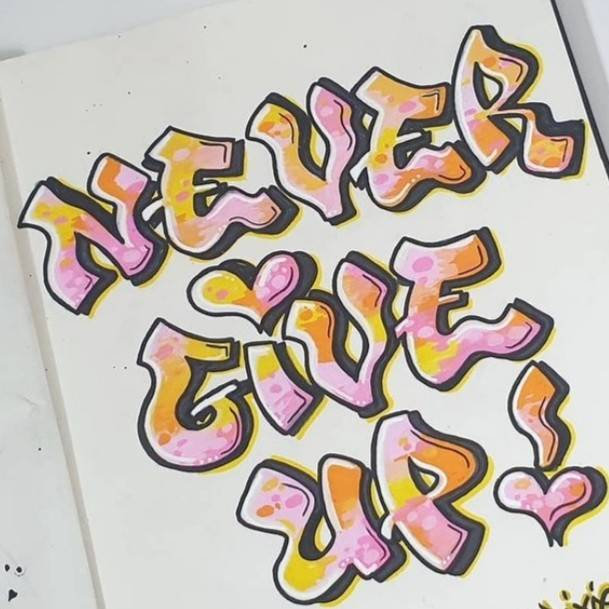 NEVER
GiVE
UP!